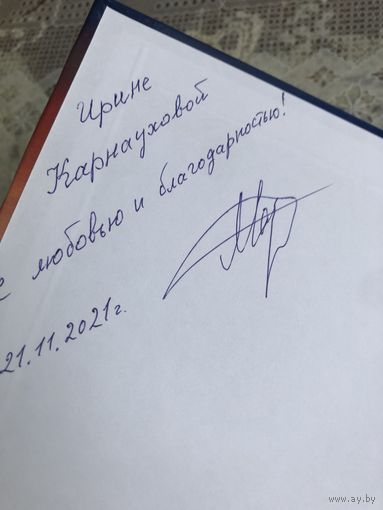 Ирине
Карнауховой
с любовью и благодарностью!
21.11.2021г.
www.ay.by